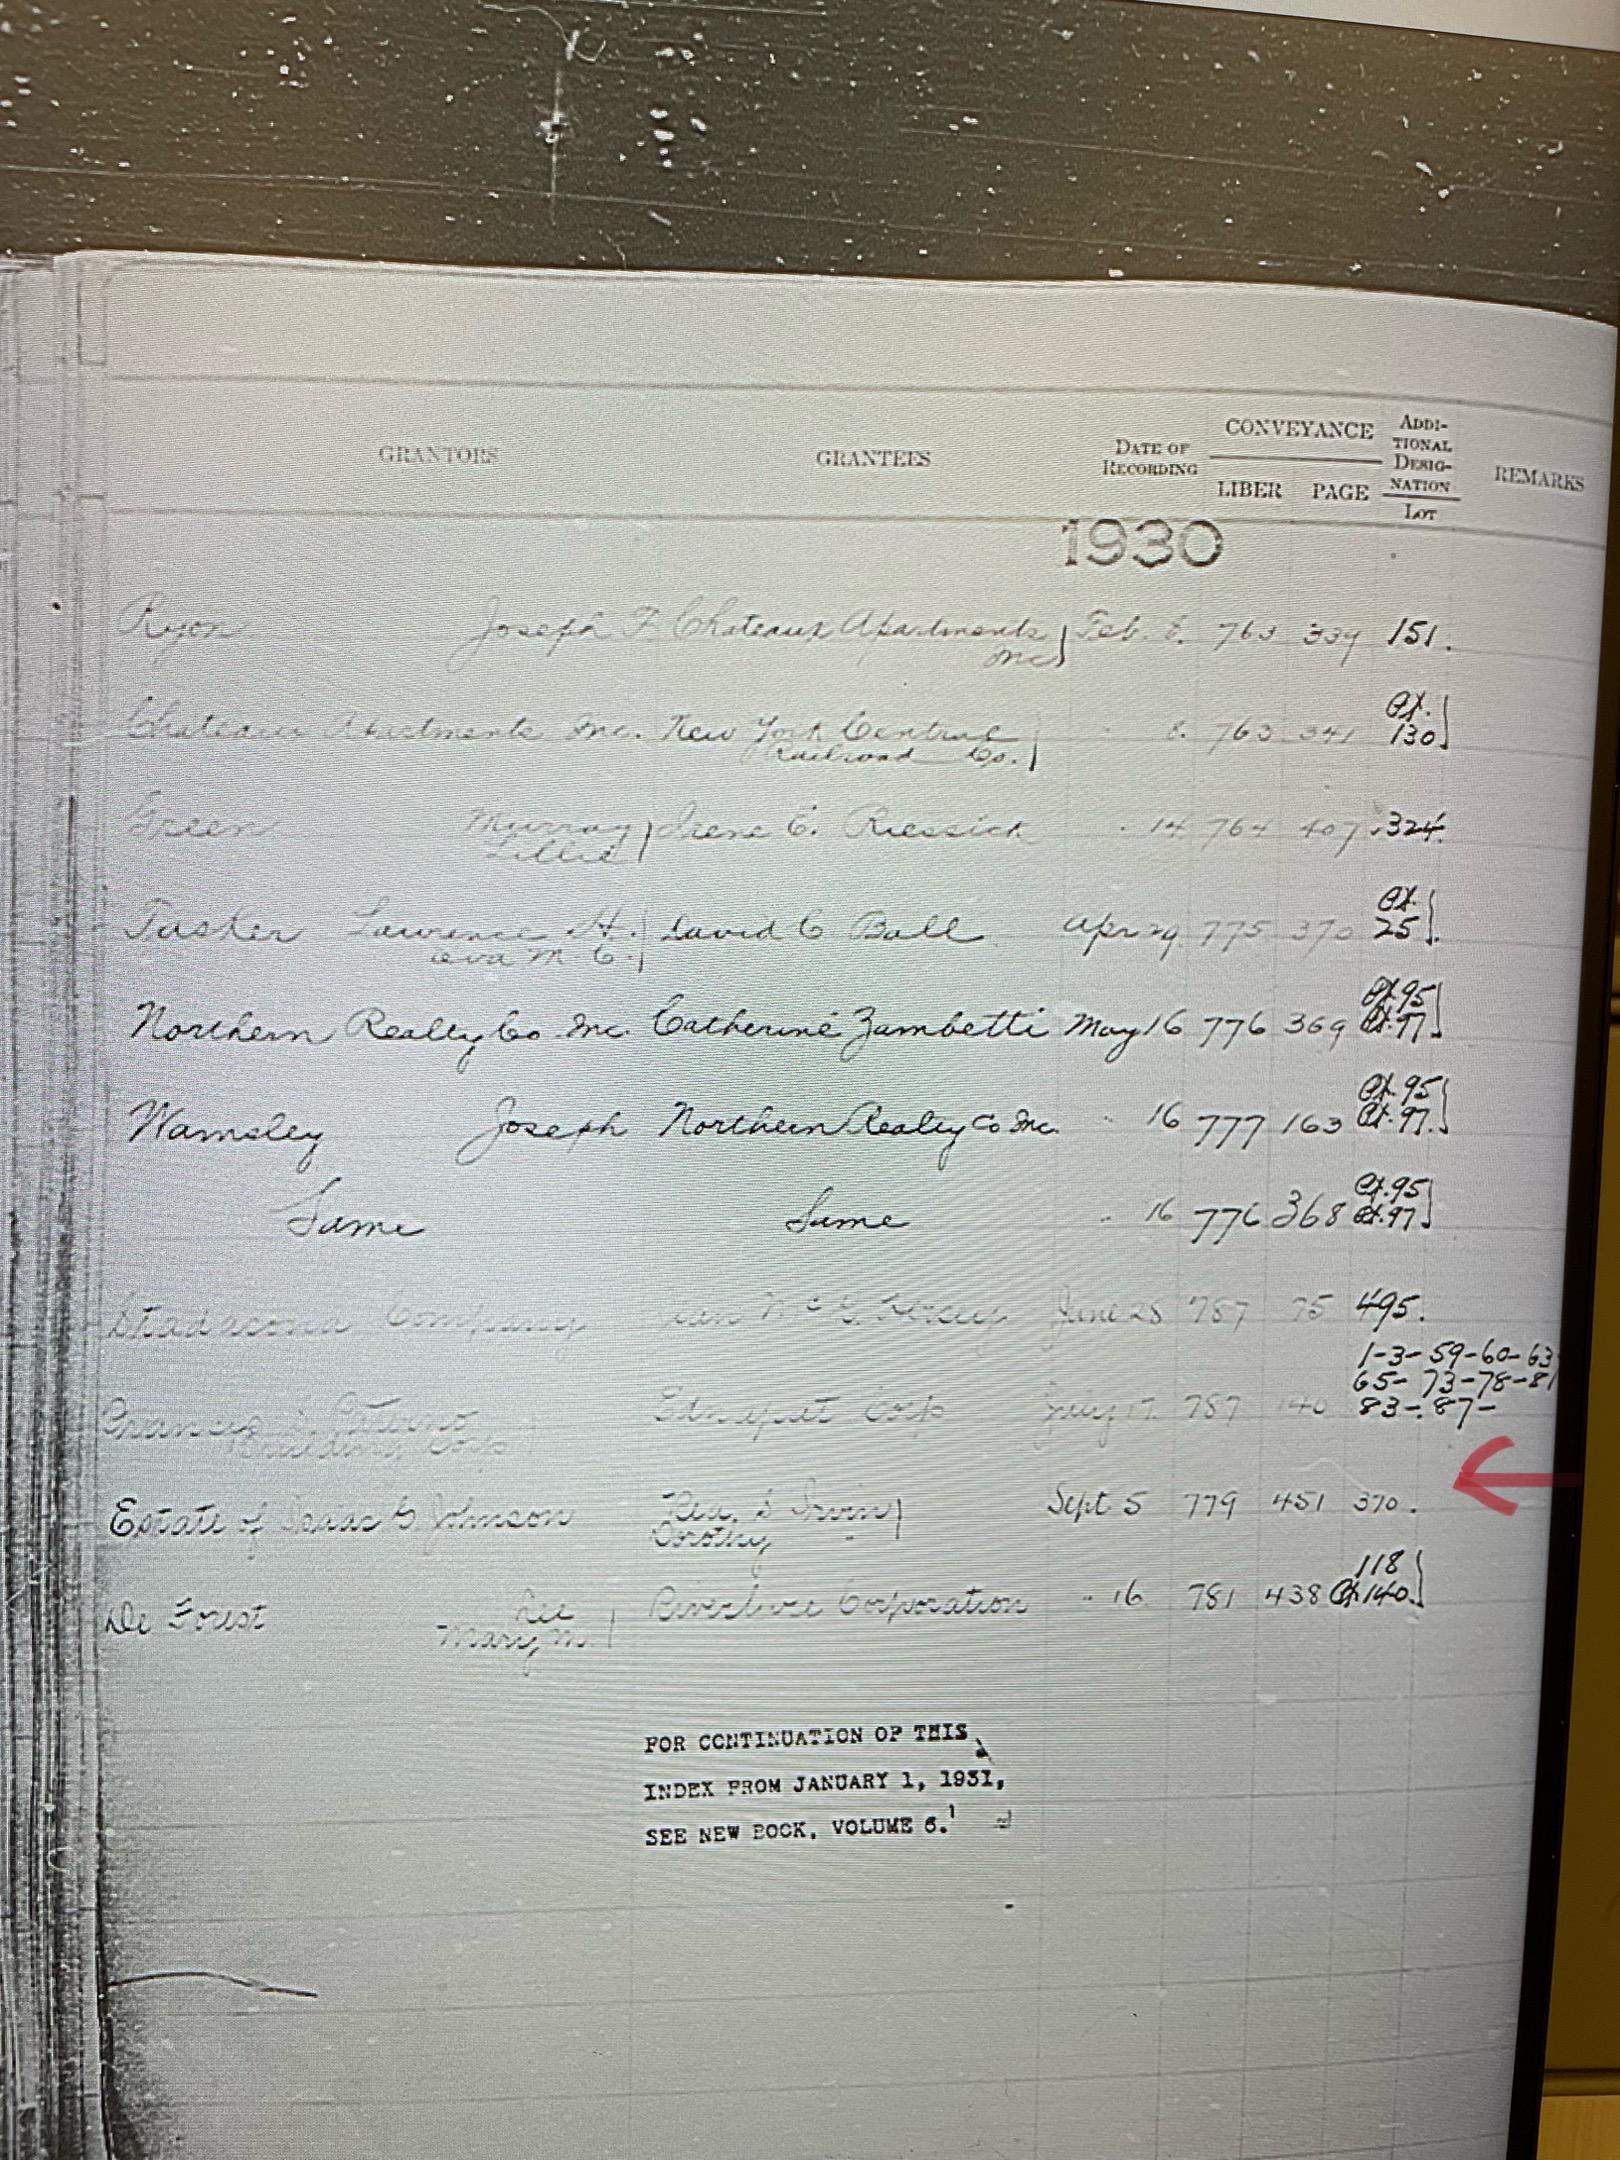 GRANTORS GRANTEES DATE OF RECORDING CONVEYANCE LIBER PAGE ADDI-TIONAL DESIG-NATION LOT REMARKS
1930
Ryon Joseph F. Chateaux Apartments Feb. 8. 763 339 151.
Inc
Chateaux Apartments Inc. New York Central " 8. 763 341 Pt. 130
Railroad Co.
Green Murray Irene C. Riessick " 14 764 407 324.
Lillie
Tasker Lawrence H. David C Ball Apr 29 775 370 Pt. 25.
Eva M. C.
Northern Realty Co Inc. Catherine Zambetti May 16 776 369 Pt. 95 Pt. 97.
Wamsley Joseph Northern Realty Co Inc. " 16 777 163 Pt. 95 Pt. 97.
Same Same " 16 776 368 Pt. 95 Pt. 97.
Stadacona Company June 28 787 75 495.
1-3-59-60-63
65-73-78-81
Corp 17. 787 140 83-87-
Building Corp
Estate of Isaac G Johnson Rea. S Irvin Sept 5 779 451 370.
Dorothy
De Forest Lee Corporation " 16 781 438 118 Pt. 140.
Mary M.
FOR CONTINUATION OF THIS
INDEX FROM JANUARY 1, 1931,
SEE NEW BOOK, VOLUME 6.